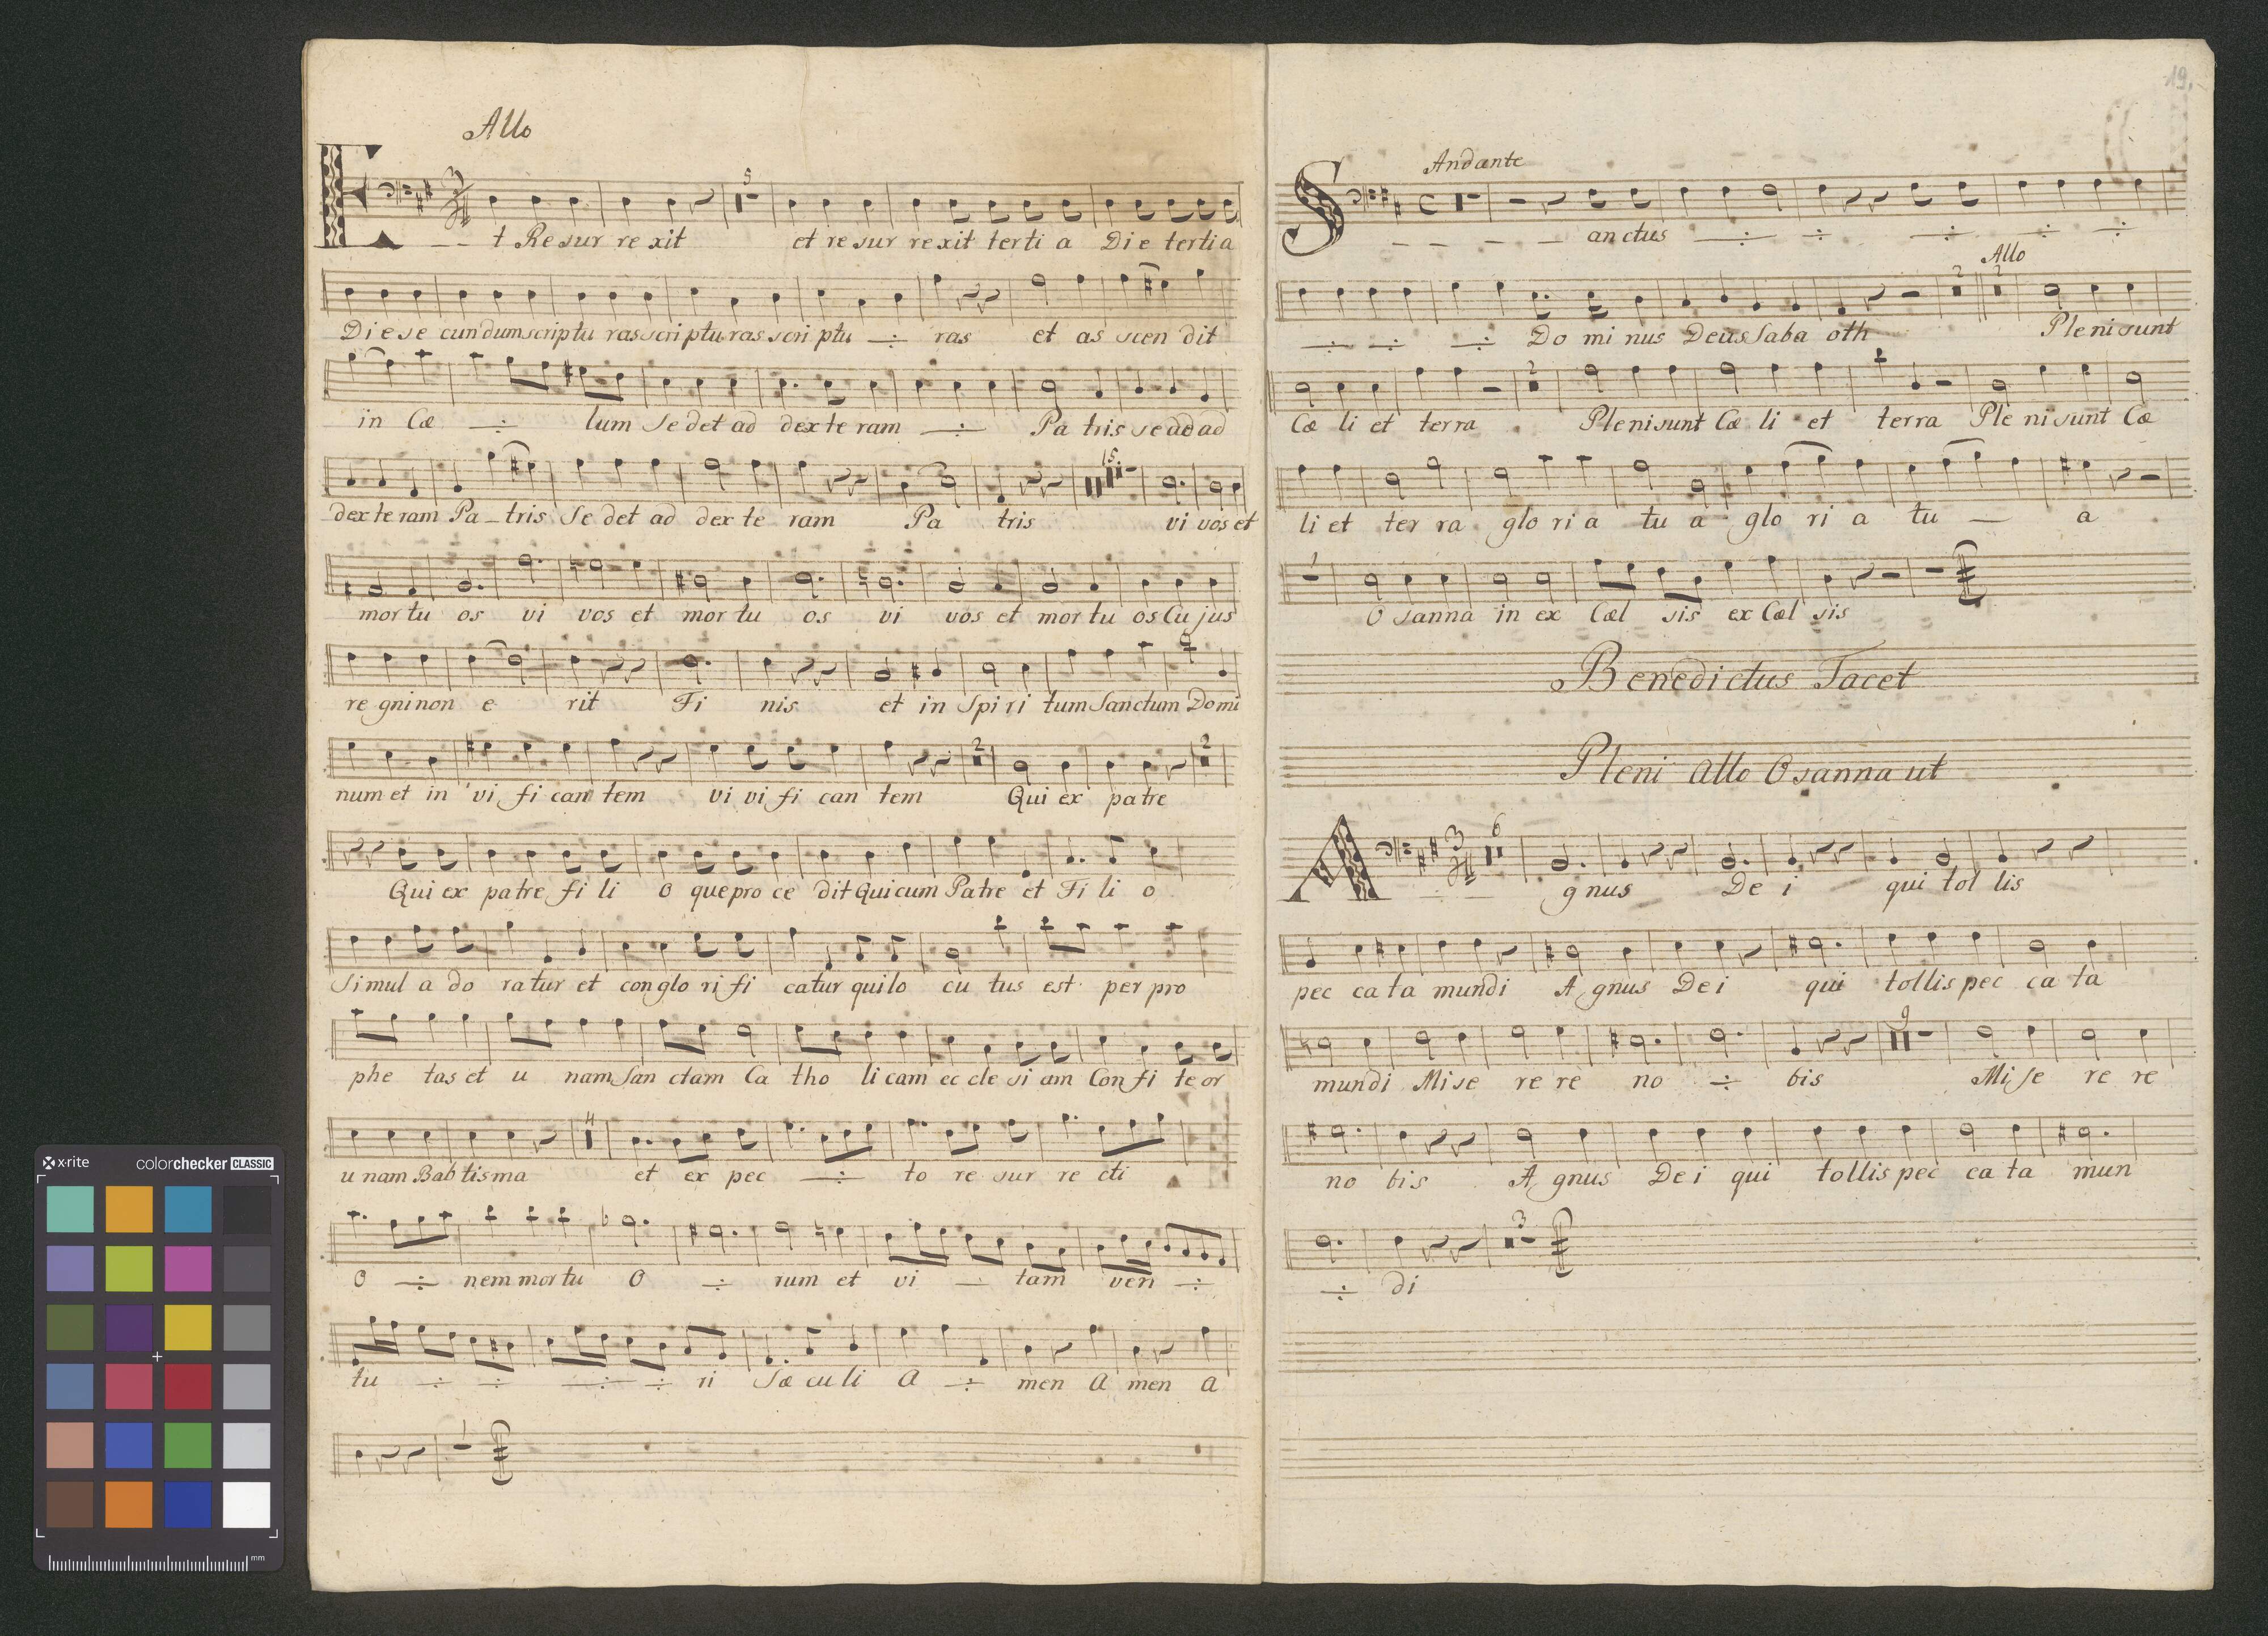 Allo
5
Et Resur re xit et re sur rexit terti a Di e tertia
Di e se cundum scriptu ras scriptu ras scri ptu ÷ ras et as scen dit
in Cæ ÷ lum Se det ad dex te ram ÷ Pa tris se ad ad
15
dex te ram Pa - tris Se det ad dex te ram Pa tris vi vos et
mor tu os vi vos et mor tu os vi vos et mor tu os Cu jus
re gni non e rit Fi nis et in Spi ri tum Sanctum Domi
2 2
num et in vi fi can tem vi vi fi can tem Qui ex patre
Qui ex patre fi li o que pro ce dit Qui cum Patre et Fi li o
Simul a do ra tur et con glo ri fi catur qui lo cu tus est per pro
phe tas et u nam San ctam Ca tho li cam ec cle si am Con fi te or
4
u nam Bab tis ma et ex pec ÷ to re sur re cti
o ÷ nem mor tu o ÷ rum et vi — tam ven ÷
tu ÷ ÷ ÷ ÷ ri Sæ cu li A ÷ men A men A
19.
Andante
C
S anctus ÷ ÷ ÷ ÷ ÷
Allo
2 2
÷ ÷ ÷ Do mi nus Deus Saba oth Pleni sunt
2
Cæ li et terra Pleni sunt Cæ li et terra Ple ni sunt Cæ
li et ter ra glo ri a tu a glo ri a tu — a
O sanna in ex Cæl sis ex Cæl sis
Benedictus Tacet
Pleni Allo Osanna ut
3 6
A gnus De i qui tol lis
pec ca ta mundi A gnus De i qui tollis pec ca ta
9
mundi Mise re re no ÷ bis Mi se re re
no bis A gnus De i qui tollis pec ca ta mun
3
÷ di
x·rite colorchecker CLASSIC
mm